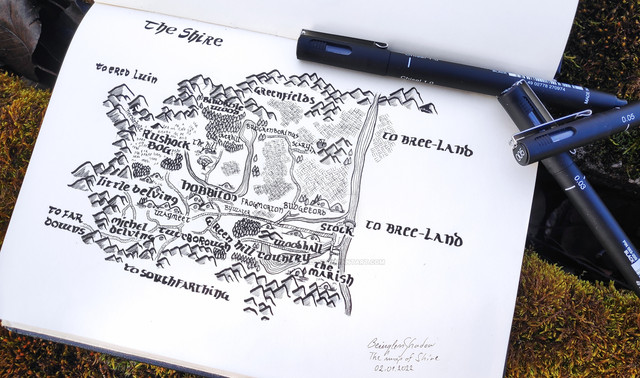 The Shire
to ered Luin
Greenfields
Brockenborings
Scary
Rushock
Bog
to Bree-Land
little delving
hobbiton
Frogmorton
Budgeford
Bywater
Waymeet
to far
downs
michel
delving
tuckborough
Green hill country
Stock
to Bree-Land
woodhall
the
marish
to southfarthing
The map of Shire
02.01.2022
0.05
0.05
0.03